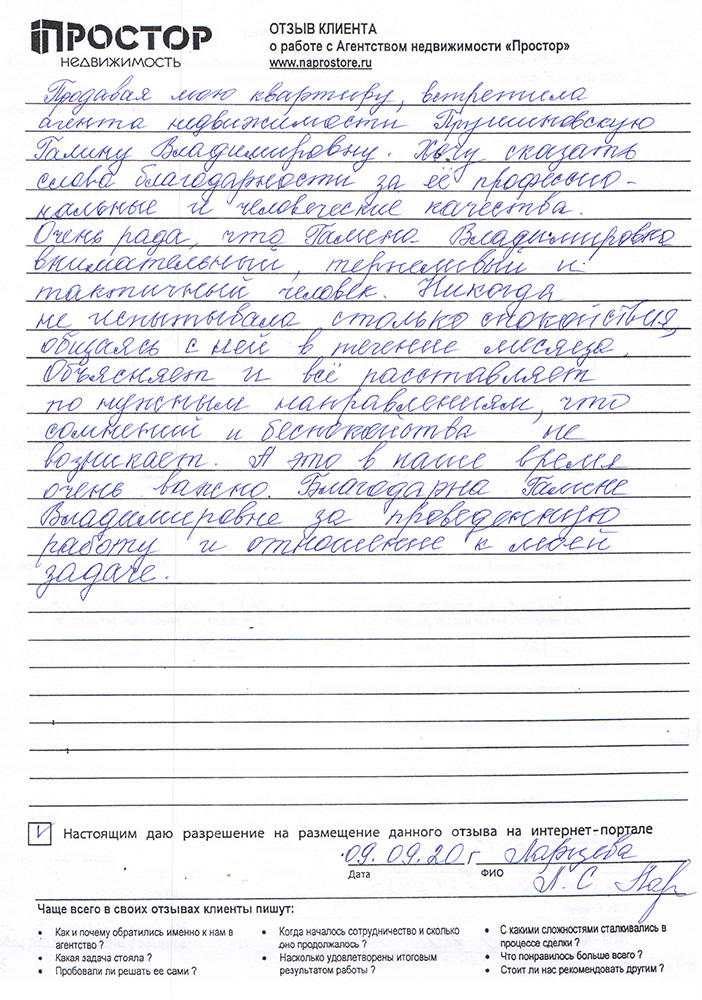 ПРОСТОР
НЕДВИЖИМОСТЬ
ОТЗЫВ КЛИЕНТА
о работе с Агентством недвижимости «Простор»
www.naprostore.ru
Продавая мою квартиру, встретила
агента недвижимости Прушиновскую
Галину Владимировну. Хочу сказать
слова благодарности за её профессио-
нальные и человеческие качества.
Очень рада, что Галина Владимировна
внимательный, терпеливый и
тактичный человек. Никогда
не испытывала столько спокойствия,
общаясь с ней в течение месяца.
Объясняет и всё расставляет
по нужным направлениям, что
сомнений и беспокойства не
возникает. А это в наше время
очень важно. Благодарна Галине
Владимировне за проведенную
работу и отношение к моей
задаче.
V Настоящим даю разрешение на размещение данного отзыва на интернет-портале
09.09.20 г Ларцева
Дата ФИО
Л. С
Чаще всего в своих отзывах клиенты пишут:
• Как и почему обратились именно к нам в
агентство ?
• Какая задача стояла ?
• Пробовали ли решать ее сами ?
• Когда началось сотрудничество и сколько
оно продолжалось ?
• Насколько удовлетворены итоговым
результатом работы ?
• С какими сложностями сталкивались в
процессе сделки ?
• Что понравилось больше всего ?
• Стоит ли нас рекомендовать другим ?